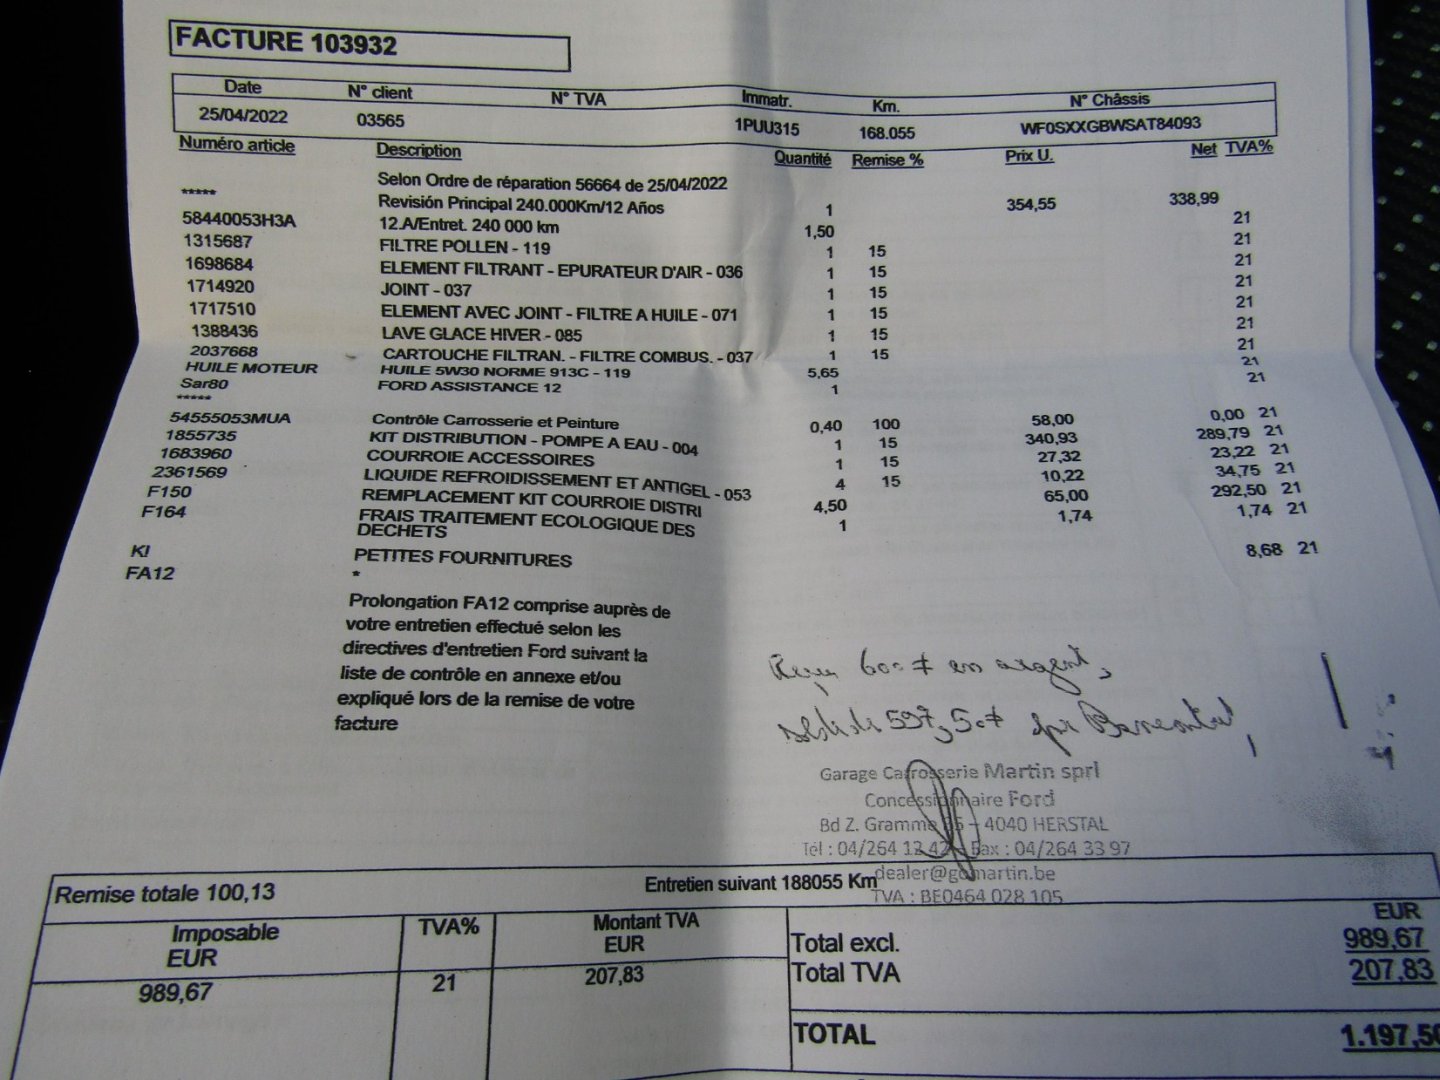 FACTURE 103932
Date N° client N° TVA Immatr. Km. N° Châssis
25/04/2022 03565 1PUU315 168.055 WF0SXXGBWSAT84093
Numéro article Description Quantité Remise % Prix U. Net TVA%
Selon Ordre de réparation 56664 de 25/04/2022
***** Revisión Principal 240.000Km/12 Años 1 354,55 338,99
58440053H3A 12.A/Entret. 240 000 km 1,50 21
1315687 FILTRE POLLEN - 119 1 15 21
1698684 ELEMENT FILTRANT - EPURATEUR D'AIR - 036 1 15 21
1714920 JOINT - 037 1 15 21
1717510 ELEMENT AVEC JOINT - FILTRE A HUILE - 071 1 15 21
1388436 LAVE GLACE HIVER - 085 1 15 21
2037668 CARTOUCHE FILTRAN. - FILTRE COMBUS. - 037 1 15 21
HUILE MOTEUR HUILE 5W30 NORME 913C - 119 5,65 21
Sar80 FORD ASSISTANCE 12 1 21
*****
54555053MUA Contrôle Carrosserie et Peinture 0,40 100 58,00 0,00 21
1855735 KIT DISTRIBUTION - POMPE A EAU - 004 1 15 340,93 289,79 21
1683960 COURROIE ACCESSOIRES 1 15 27,32 23,22 21
2361569 LIQUIDE REFROIDISSEMENT ET ANTIGEL - 053 4 15 10,22 34,75 21
F150 REMPLACEMENT KIT COURROIE DISTRI 4,50 65,00 292,50 21
F164 FRAIS TRAITEMENT ECOLOGIQUE DES 1 1,74 1,74 21
DECHETS
KI PETITES FOURNITURES 8,68 21
FA12 *
Prolongation FA12 comprise auprès de
votre entretien effectué selon les
directives d'entretien Ford suivant la
liste de contrôle en annexe et/ou
expliqué lors de la remise de votre
facture
Reçu 600 € en argent,
solde de 597,50 €
Garage Carrosserie Martin sprl
Concessionnaire Ford
Bd Z. Gramme - 4040 HERSTAL
Tél : 04/264 12 42 - Fax : 04/264 33 97
dealer@gomartin.be
TVA : BE0464 028 105
Remise totale 100,13 Entretien suivant 188055 Km
Imposable TVA% Montant TVA EUR
EUR EUR Total excl. 989,67
989,67 21 207,83 Total TVA 207,83
TOTAL 1.197,50